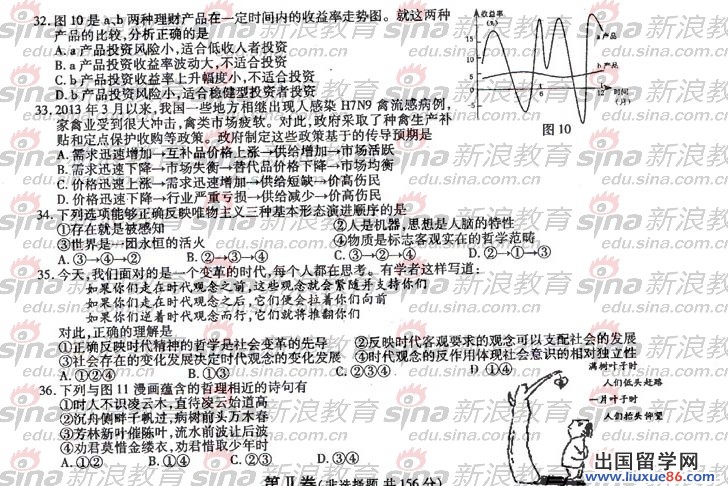 32. 图 10 是 a、b 两种理财产品在一定时间内的收益率走势图。就这两种
产品的比较,分析正确的是
A. a 产品投资风险小,适合低收入者投资
B. a 产品投资收益率波动大,不适合投资
C. b 产品投资收益率上升幅度小,不适合投资
D. b 产品投资风险小,适合稳健型投资者投资
收益率
(%)
15
10
5
0
-5
6
12
时间
(月)
a 产品
b 产品
图 10
33. 2013 年 3 月以来,我国一些地方相继出现人感染 H7N9 禽流感病例,
家禽业受到很大冲击,禽类市场疲软。对此,政府采取了种禽生产补
贴和定点保护收购等政策。政府制定这些政策基于的传导预期是
A. 需求迅速增加→互补品价格上涨→供给增加→市场活跃
B. 需求迅速下降→市场失衡→替代品价格下降→市场均衡
C. 价格迅速上涨→需求迅速增加→供给短缺→价高伤民
D. 价格迅速下降→行业严重亏损→供给减少→价高伤民
34. 下列选项能够正确反映唯物主义三种基本形态演进顺序的是
①存在就是被感知 ②人是机器,思想是人脑的特性
③世界是一团永恒的活火 ④物质是标志客观实在的哲学范畴
A. ③→④→② B. ②→③→④ C. ③→②→④ D. ②→①→③
35. 今天,我们面对的是一个变革的时代,每个人都在思考。有学者这样写道:
如果你们走在时代观念之前,这些观念就会紧随并支持你们
如果你们走在时代观念之后,它们便会拉着你们向前
如果你们逆着时代观念而行,它们就将推翻你们
对此,正确的理解是
①正确反映时代精神的哲学是社会变革的先导 ②反映时代客观要求的观念可以支配社会的发展
③社会存在的变化发展决定时代观念的变化发展 ④时代观念的反作用体现社会意识的相对独立性
A. ①②④ B. ①③④ C. ②③ D. ①④
36. 下列与图 11 漫画蕴含的哲理相近的诗句有
①时人不识凌云木,直待凌云始道高
②沉舟侧畔千帆过,病树前头万木春
③芳林新叶催陈叶,流水前波让后波
④劝君莫惜金缕衣,劝君惜取少年时
A. ①② B. ①④ C. ②③ D. ③④
满树叶子时
人们低头赶路
一片叶子时
人们抬头仰望
第Ⅱ卷(非选择题 共 156 分)
sina 新浪教育
edu.sina.com.cn
出国留学网
www.liuxue86.com